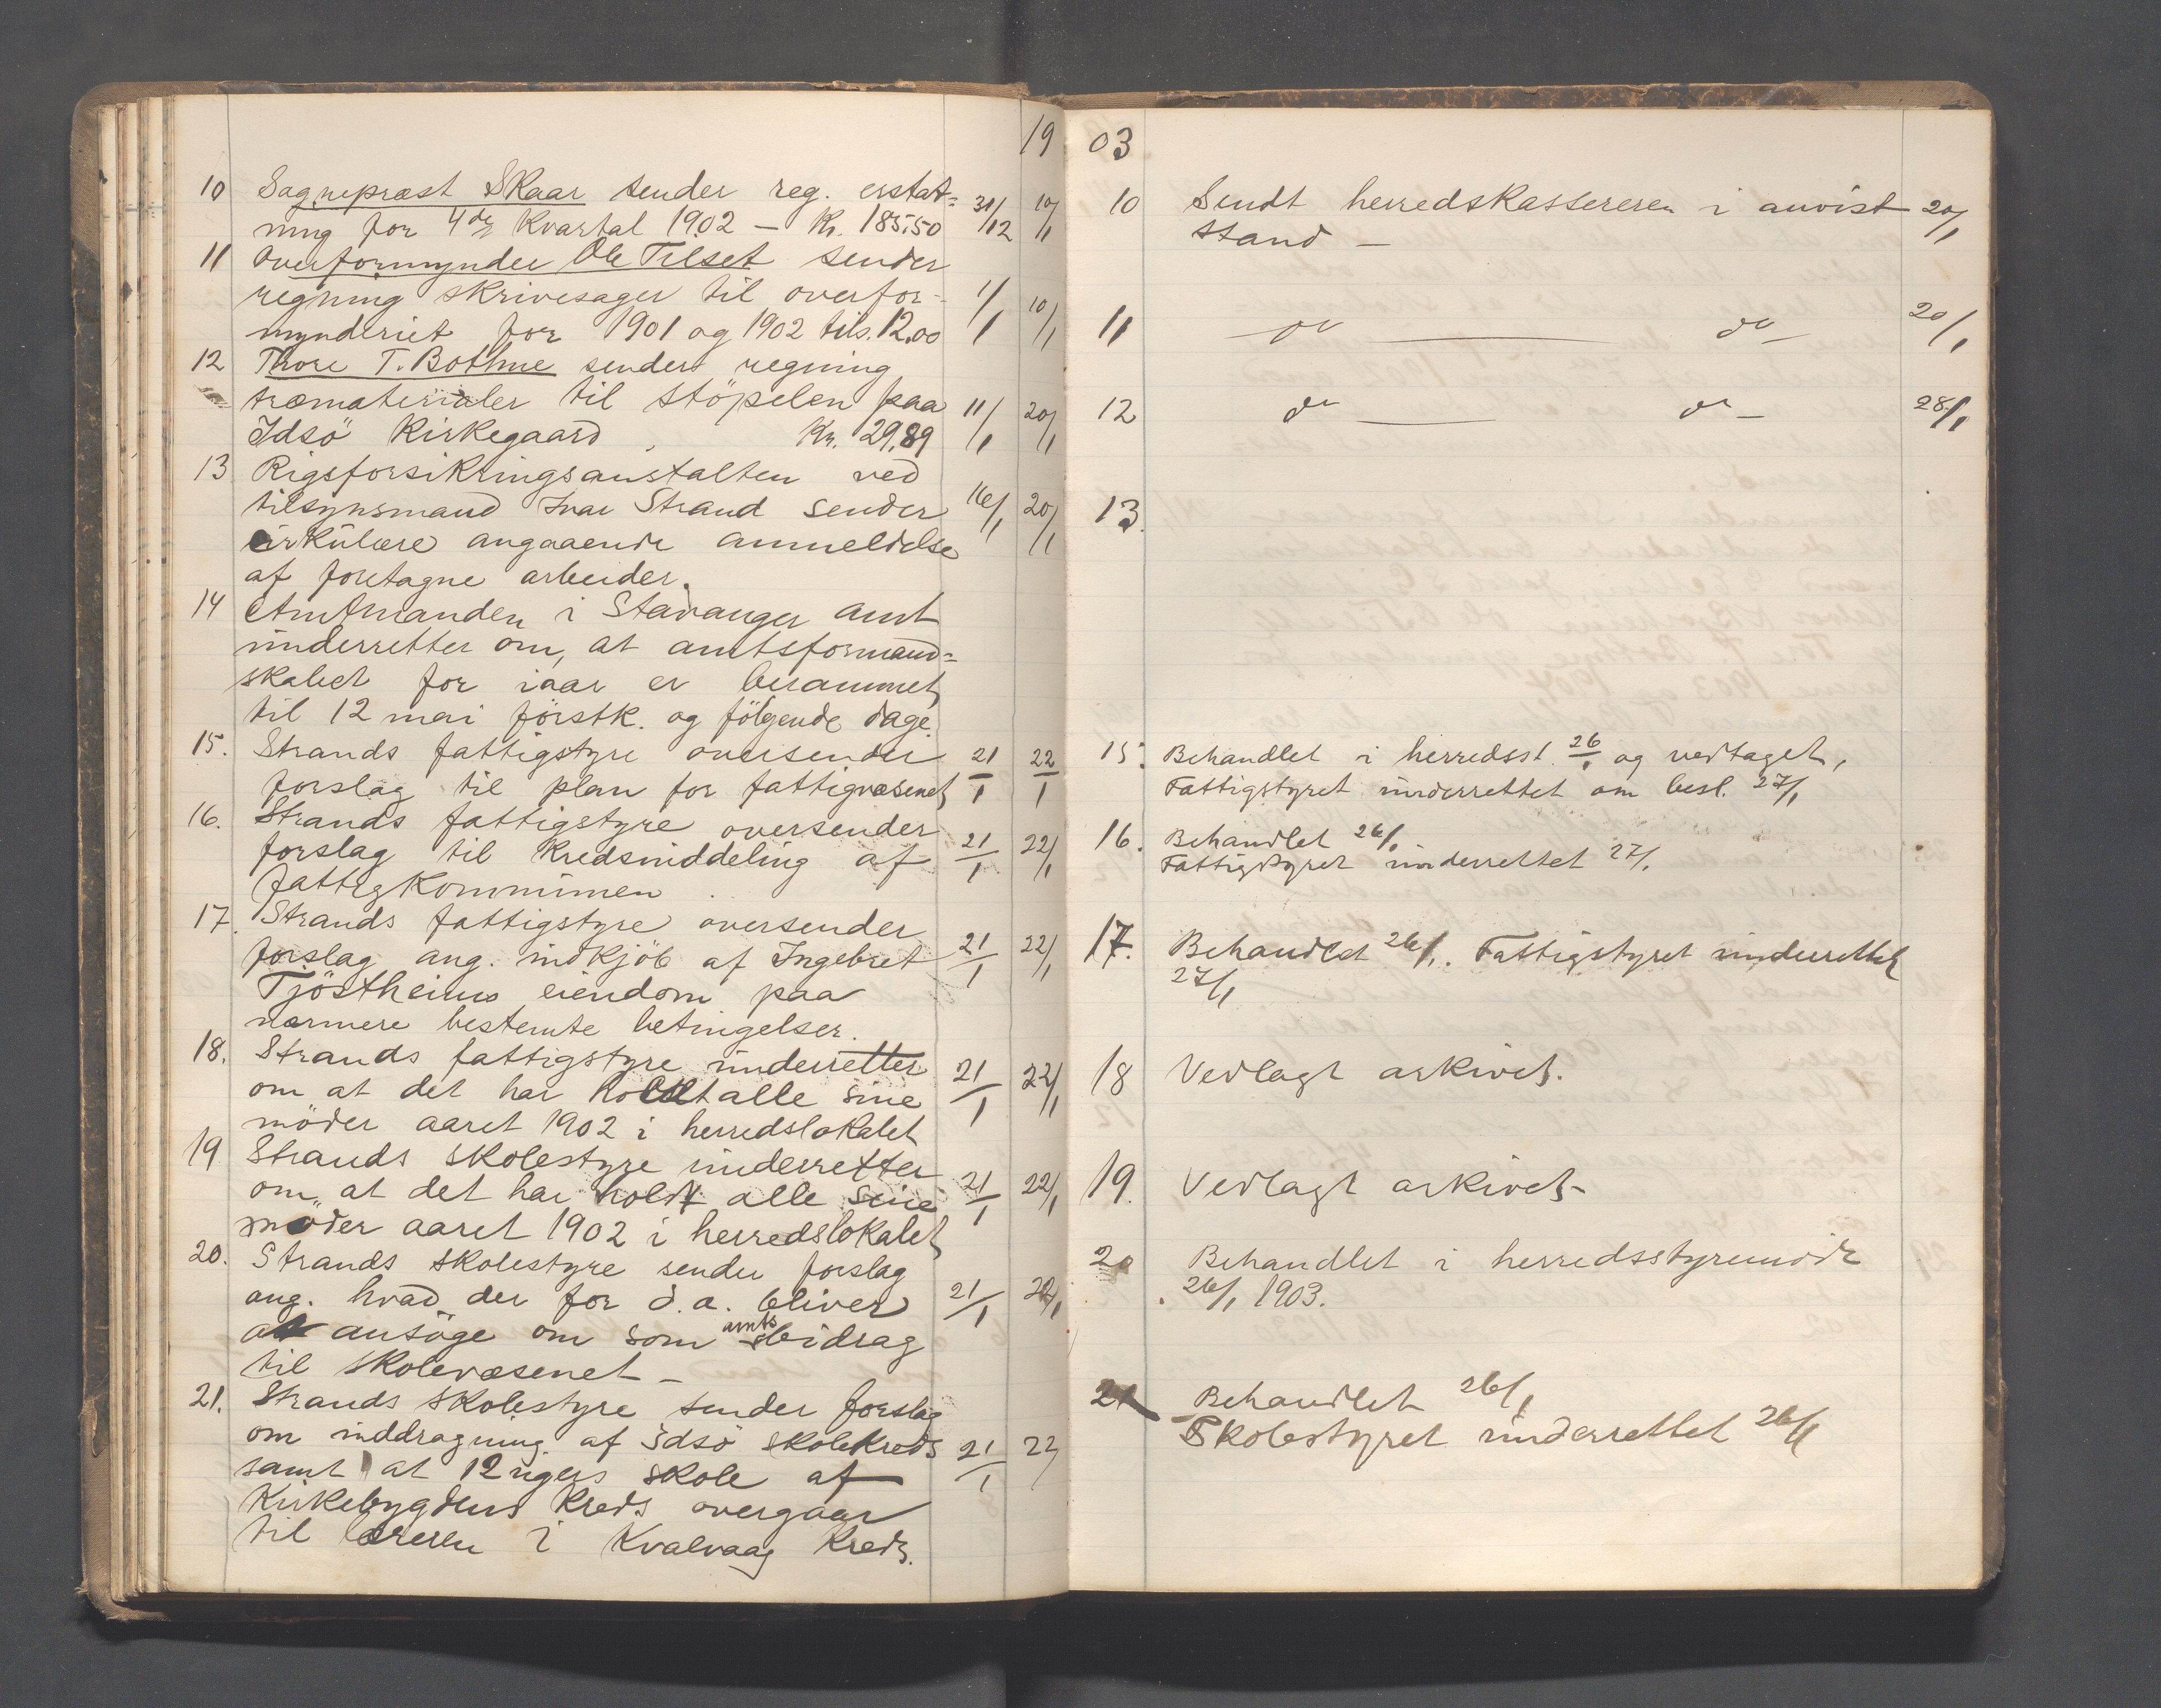 19
10 Sognepræst Skaar sender reg. erstat= 31/12 10/1
ning for 4de Kvartal 1902 — Kr. 185.50
11 Overformynder Ole Tilset sender
regning skrivesager til overfor- 1/1 10/1
mynderiet for 1901 og 1902 tils. 12.00
12 Thore T. Bothne sender regning
træmaterialer til støpelen paa 11/1 20/1
Idsö Kirkegaard Kr. 29.89
13 Rigsforsikringsanstalten ved
tilsynsmand Ivar Strand sender 16/1 20/1
cirkulære angaaende anmeldelse
af foretagne arbeider.
14 Amtmanden i Stavanger amt
underretter om, at amtsformand=
skabet for iaar er berammet
til 12 mai förstk. og fölgende dage.
15. Strands fattigstyre oversender 21/1 22/1
forslag til plan for fattigvæsenet
16. Strands fattigstyre oversender
forslag til Kredsinddeling af 21/1 22/1
fattigkommunen
17. Strands fattigstyre oversender
forslag ang. indkjöb af Ingebret 21/1 22/1
Tjöstheims eiendom paa
nærmere bestemte betingelser.
18. Strands fattigstyre underretter
om at det har holdt alle sine 21/1 22/1
möder aaret 1902 i herredslokalet
19 Strands skolestyre underretter
om, at det har holdt alle sine 21/1 22/1
möder aaret 1902 i herredslokalet
20. Strands skolestyre sender forslag
ang. hvad der for d.a. bliver 21/1 22/1
at ansöge om som amtsbidrag
til skolevæsenet —
21. Strands skolestyre sender forslag
om inddragning af Idsö skolekreds 21/1 22/
samt at 12 ugers skole af
Kirkebygdens Kreds overgaar
til læreren i Kvalvaag Kreds.
03
10 Sendt herredskassereren i anvist 20/1
stand —
11 do — do — 20/1
12 do — do — 28/1
13.
15. Behandlet i herredsst. 26/1 og vedtaget,
Fattigstyret underrettet om besl. 27/1
16. Behandlet 26/1
Fattigstyret underrettet 27/1.
17. Behandlet 26/1. Fattigstyret underrettet
27/1
18 Vedlagt arkivet.
19. Vedlagt arkivet —
20 Behandlet i herredsstyremöde
26/1 1903.
21 Behandlet 26/1
Skolestyret underrettet 26/1